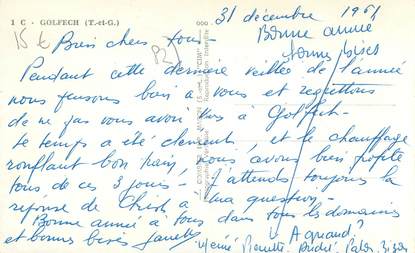 1 C - GOLFECH (T.-et-G.)
31 décembre 1961
Bonne année
bonne bises
15 €
Bien chers tous -
P21
Pendant cette dernière veillée de l'année
nous pensons bien à vous et regrettons
de ne pas vous avoir vus à Golfech -
Le temps a été clément, et le chauffage
ronflant bon train, nous avons bien profité
tous, de ces 3 jours - J'attends toujours la
réponse de à ma question -
Bonne année à tous dans tous les domaines
et bonnes bises
" A quand?"
Reproduction Interdite